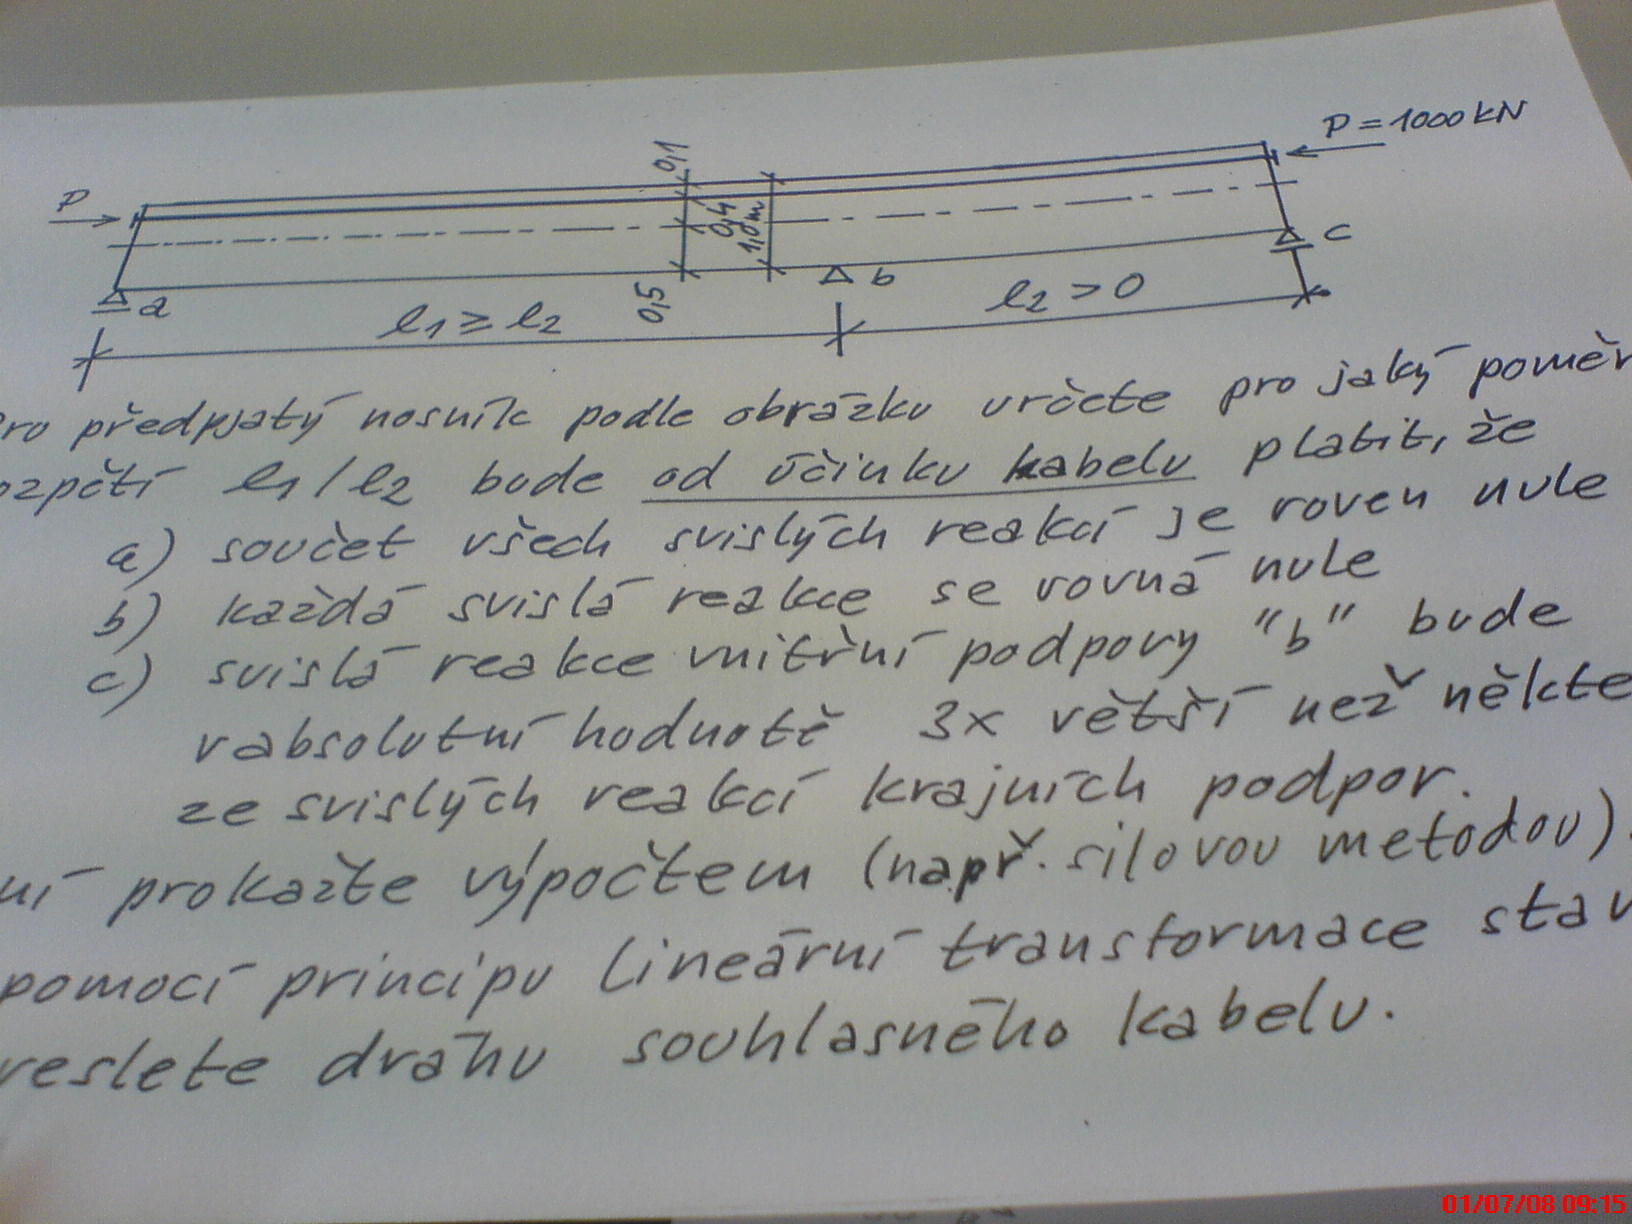 P = 1000 kN
P
0,1
0,4
1,0m
0,5
a
b
c
l1 ≥ l2
l2 > 0
předpjatý nosník podle obrázku určete pro jaký poměr
l1/l2 bude od účinku kabelu platit, že
a) součet všech svislých reakcí je roven nule
b) každá svislá reakce se rovná nule
c) svislá reakce vnitřní podpory "b" bude
v absolutní hodnotě 3x větší než někte
ze svislých reakcí krajních podpor.
prokažte výpočtem (např. silovou metodou).
pomocí principu lineární transformace stav
reslete dráhu souhlasného kabelu.
01/07/08 09:15